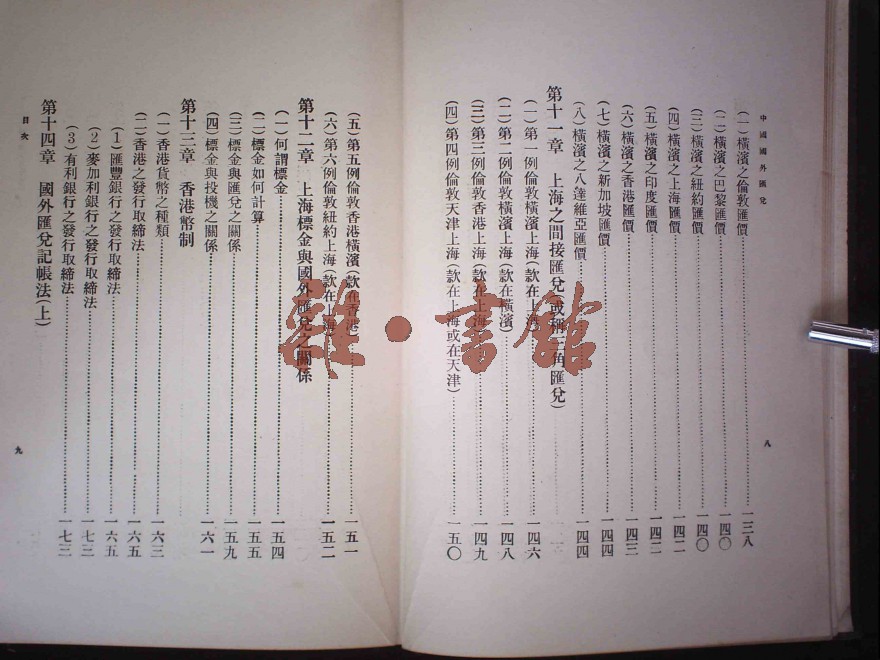 中國國外匯兌
(一)橫濱之倫敦匯價 一三八
(二)橫濱之巴黎匯價 一四〇
(三)橫濱之紐約匯價 一四〇
(四)橫濱之上海匯價 一四二
(五)橫濱之印度匯價 一四二
(六)橫濱之香港匯價 一四三
(七)橫濱之新加坡匯價 一四四
(八)橫濱之八達維亞匯價 一四四
第十一章 上海之間接匯兌(或稱三角匯兌)
(一)第一例倫敦橫濱上海(款在上海) 一四六
(二)第二例倫敦橫濱上海(款在橫濱) 一四八
(三)第三例倫敦香港上海(款在上海) 一四九
(四)第四例倫敦天津上海(款在上海或在天津) 一五〇
八
(五)第五例倫敦香港橫濱(款在香港) 一五一
(六)第六例倫敦紐約上海(款在上海) 一五二
第十二章 上海標金與國外匯兌之關係
(一)何謂標金 一五四
(二)標金如何計算 一五五
(三)標金與匯兌之關係 一五九
(四)標金與投機之關係 一六一
第十三章 香港幣制
(一)香港貨幣之種類 一六三
(二)香港之發行取締法 一六五
(1)匯豐銀行之發行取締法 一六五
(2)麥加利銀行之發行取締法 一七三
(3)有利銀行之發行取締法 一七三
第十四章 國外匯兌記帳法(上)
目次
九
雜·書館